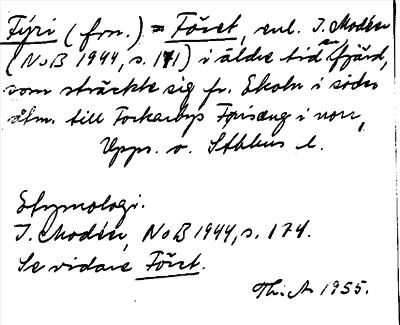 Fýri (frn.) = Föret, enl. I. Modéer
(NoB 1944, s. 171) i äldre tid en fjärd,
som sträckte sig fr. Ekoln i söder
åtm. till Forkarbys Forsæng i norr,
Upps. o. Sthlms l.
Etymologi.
I. Modéer, NoB 1944, s. 174.
Se vidare Föret.
Th. A. 1955.